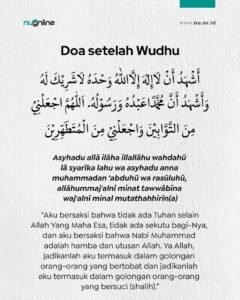 nuonline
www.nu.or.id
Doa setelah Wudhu
أَشْهَدُ أَنْ لَا إِلٰهَ إِلَّا اللهُ وَحْدَهُ لَا شَرِيْكَ لَهُ
وَأَشْهَدُ أَنَّ مُحَمَّدًا عَبْدُهُ وَرَسُوْلُهُ، اَللّٰهُمَّ اجْعَلْنِيْ
مِنَ التَّوَّابِيْنَ وَاجْعَلْنِيْ مِنَ الْمُتَطَهِّرِيْنَ
Asyhadu allâ ilâha illallâhu wahdahû
lâ syarîka lahu wa asyhadu anna
muhammadan 'abduhû wa rasûluhû,
allâhummaj'alnî minat tawwâbîna
waj'alnî minal mutathahhirîn(a)
"Aku bersaksi bahwa tidak ada Tuhan selain
Allah Yang Maha Esa, tidak ada sekutu bagi-Nya,
dan aku bersaksi bahwa Nabi Muhammad
adalah hamba dan utusan Allah. Ya Allah,
jadikanlah aku termasuk dalam golongan
orang-orang yang bertobat dan jadikanlah
aku termasuk dalam golongan orang-orang
yang bersuci (shalih)."